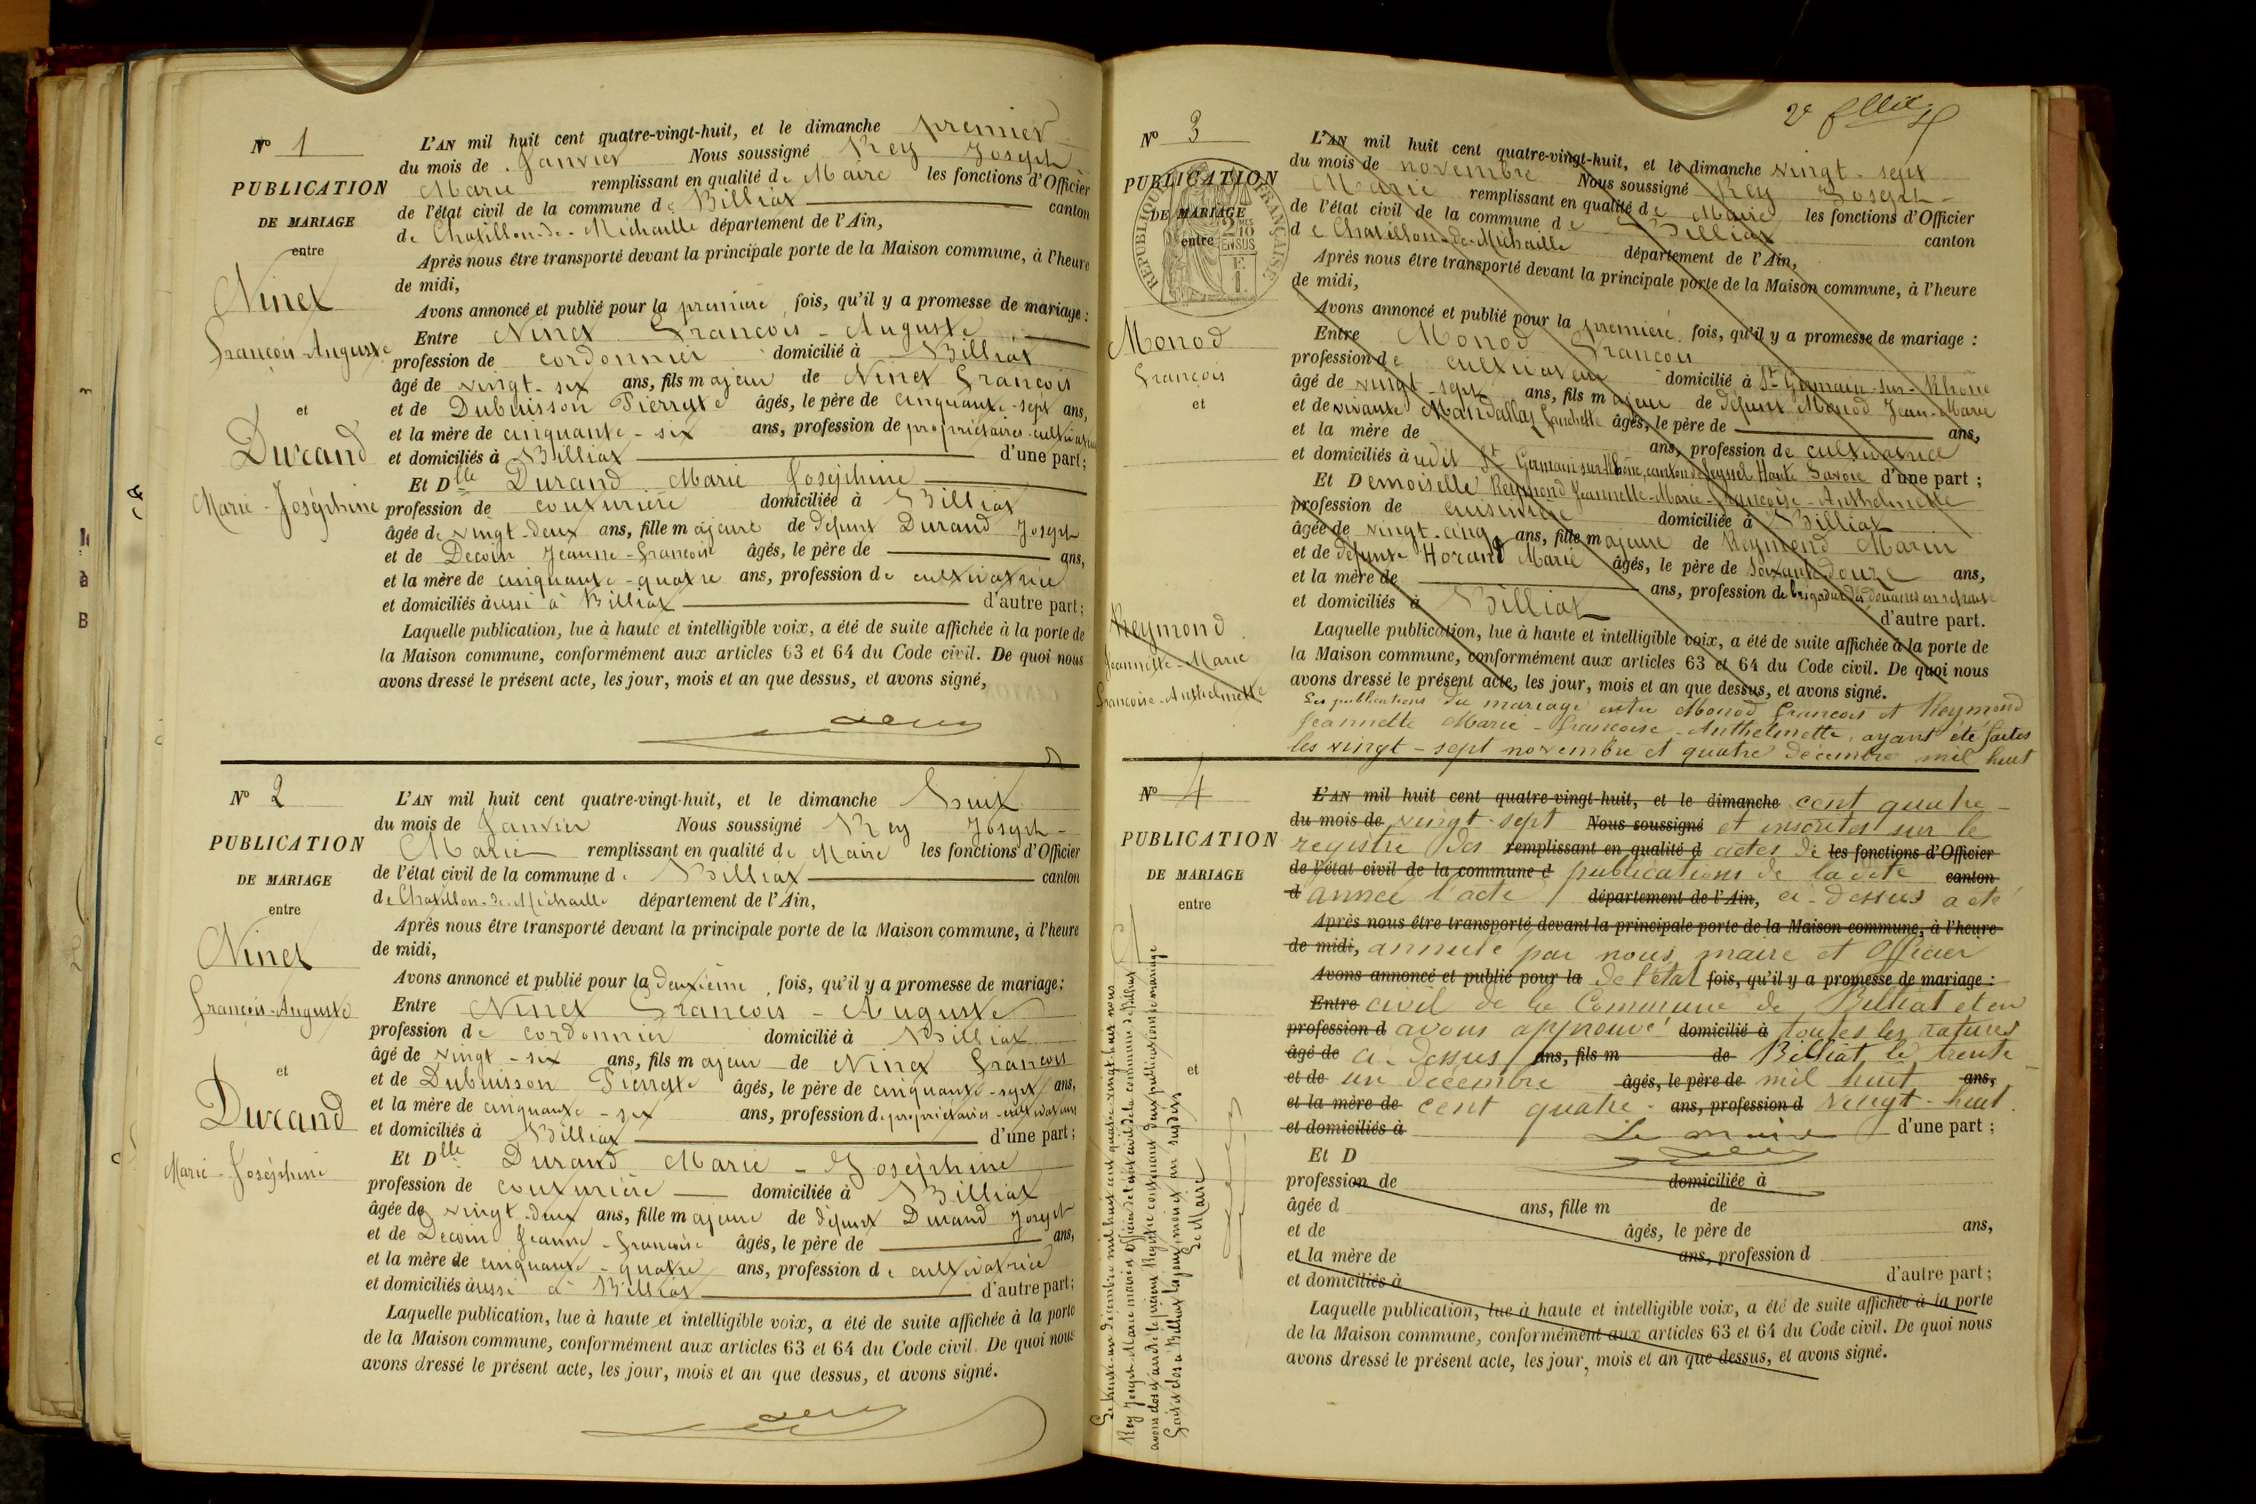 N° 1
PUBLICATION
DE MARIAGE
entre
Ninet
François-Auguste
et
Durand
Marie-Joséphine
L'AN mil huit cent quatre-vingt-huit, et le dimanche premier
du mois de Janvier Nous soussigné Rey Joseph
Marie remplissant en qualité de Maire les fonctions d'Officier
de l'état civil de la commune de Billiat canton
de Chatillon-de-Michaille département de l'Ain,
Après nous être transporté devant la principale porte de la Maison commune, à l'heure
de midi,
Avons annoncé et publié pour la première fois, qu'il y a promesse de mariage :
Entre Ninet François-Auguste
profession de cordonnier domicilié à Billiat
âgé de vingt-six ans, fils majeur de Ninet François
et de Dubuisson Pierrette âgés, le père de cinquante-sept ans,
et la mère de cinquante-six ans, profession de propriétaires-cultivateurs
et domiciliés à Billiat d'une part ;
Et Dlle Durand Marie Joséphine
profession de couturière domiciliée à Billiat
âgée de vingt-deux ans, fille majeure de défunt Durand Joseph
et de Decoin Jeanne-Françoise âgés, le père de ans,
et la mère de cinquante-quatre ans, profession de cultivatrice
et domiciliés aussi à Billiat d'autre part ;
Laquelle publication, lue à haute et intelligible voix, a été de suite affichée à la porte de
la Maison commune, conformément aux articles 63 et 64 du Code civil. De quoi nous
avons dressé le présent acte, les jour, mois et an que dessus, et avons signé,
N° 2
PUBLICATION
DE MARIAGE
entre
Ninet
François-Auguste
et
Durand
Marie-Joséphine
L'AN mil huit cent quatre-vingt-huit, et le dimanche huit
du mois de Janvier Nous soussigné Rey Joseph-
Marie remplissant en qualité de Maire les fonctions d'Officier
de l'état civil de la commune de Billiat canton
de Chatillon-de-Michaille département de l'Ain,
Après nous être transporté devant la principale porte de la Maison commune, à l'heure
de midi,
Avons annoncé et publié pour la deuxième fois, qu'il y a promesse de mariage :
Entre Ninet François-Auguste
profession de cordonnier domicilié à Billiat
âgé de vingt-six ans, fils majeur de Ninet François
et de Dubuisson Pierrette âgés, le père de cinquante-sept ans,
et la mère de cinquante-six ans, profession de propriétaires-cultivateurs
et domiciliés à Billiat d'une part ;
Et Dlle Durand Marie-Joséphine
profession de couturière domiciliée à Billiat
âgée de vingt-deux ans, fille majeure de défunt Durand Joseph
et de Decoin Jeanne-Françoise âgés, le père de ans,
et la mère de cinquante-quatre ans, profession de cultivatrice
et domiciliés aussi à Billiat d'autre part ;
Laquelle publication, lue à haute et intelligible voix, a été de suite affichée à la porte
de la Maison commune, conformément aux articles 63 et 64 du Code civil. De quoi nous
avons dressé le présent acte, les jour, mois et an que dessus, et avons signé.
N° 3
PUBLICATION
DE MARIAGE
entre
RÉPUBLIQUE FRANÇAISE
Monod
François
et
Reymond
Jeannette-Marie
Françoise-Anthelmette
L'AN mil huit cent quatre-vingt-huit, et le dimanche vingt-sept
du mois de novembre Nous soussigné Rey Joseph-
Marie remplissant en qualité de Maire les fonctions d'Officier
de l'état civil de la commune de Billiat canton
de Chatillon-de-Michaille département de l'Ain,
Après nous être transporté devant la principale porte de la Maison commune, à l'heure
de midi,
Avons annoncé et publié pour la première fois, qu'il y a promesse de mariage :
Entre Monod François
profession de cultivateur domicilié à St Germain-sur-Rhône
âgé de vingt-sept ans, fils majeur de défunt Monod Jean-Marie
et de vivante Mandallaz Fanchette âgés, le père de ans,
et la mère de ans, profession de cultivatrice
et domiciliés à udit St Germain sur Rhône, canton de Seyssel Haute Savoie d'une part ;
Et Demoiselle Reymond Jeannette-Marie-Françoise-Anthelmette
profession de cuisinière domiciliée à Billiat
âgée de vingt-cinq ans, fille majeure de Reymond Marin
et de défunte Horand Marie âgés, le père de soixante douze ans,
et la mère de ans, profession de brigadier des douanes en retraite
et domiciliés à Billiat d'autre part.
Laquelle publication, lue à haute et intelligible voix, a été de suite affichée à la porte de
la Maison commune, conformément aux articles 63 et 64 du Code civil. De quoi nous
avons dressé le présent acte, les jour, mois et an que dessus, et avons signé.
Les publications du mariage entre Monod François et Reymond
Jeannette Marie-Françoise-Anthelmette, ayant été faites
les vingt-sept novembre et quatre décembre mil huit
N° 4
PUBLICATION
DE MARIAGE
entre
et
L'AN mil huit cent quatre-vingt-huit, et le dimanche cent quatre-
du mois de vingt-sept Nous soussigné et inscrites sur le
registre des remplissant en qualité d actes de les fonctions d'Officier
de l'état civil de la commune d publications de la dite canton
d' année l'acte département de l'Ain, ci-dessus a été
Après nous être transporté devant la principale porte de la Maison commune, à l'heure
de midi, annulé par nous, maire et Officier
Avons annoncé et publié pour la de l'état fois, qu'il y a promesse de mariage :
Entre civil de la Commune de Billiat et en
profession d avons approuvé domicilié à toutes les ratures
âgé de ci-dessus ans, fils m de Billiat, le trente
et de un décembre âgés, le père de mil huit ans,
et la mère de cent quatre- ans, profession d vingt-huit.
et domiciliés à Le maire d'une part ;
Et D
profession de domiciliée à
âgée d ans, fille m de
et de âgés, le père de ans,
et la mère de ans, profession d
et domiciliés à d'autre part ;
Laquelle publication, lue à haute et intelligible voix, a été de suite affichée à la porte
de la Maison commune, conformément aux articles 63 et 64 du Code civil. De quoi nous
avons dressé le présent acte, les jour, mois et an que dessus, et avons signé.
Le trente-un décembre mil huit cent quatre vingt huit nous
Rey Joseph-Marie maire et Officier de l'état civil de la commune de Billiat
avons clos et arrêté le présent Registre contenant deux publications de mariage
Fait et clos à Billiat les jour, mois et an susdits
Le Maire